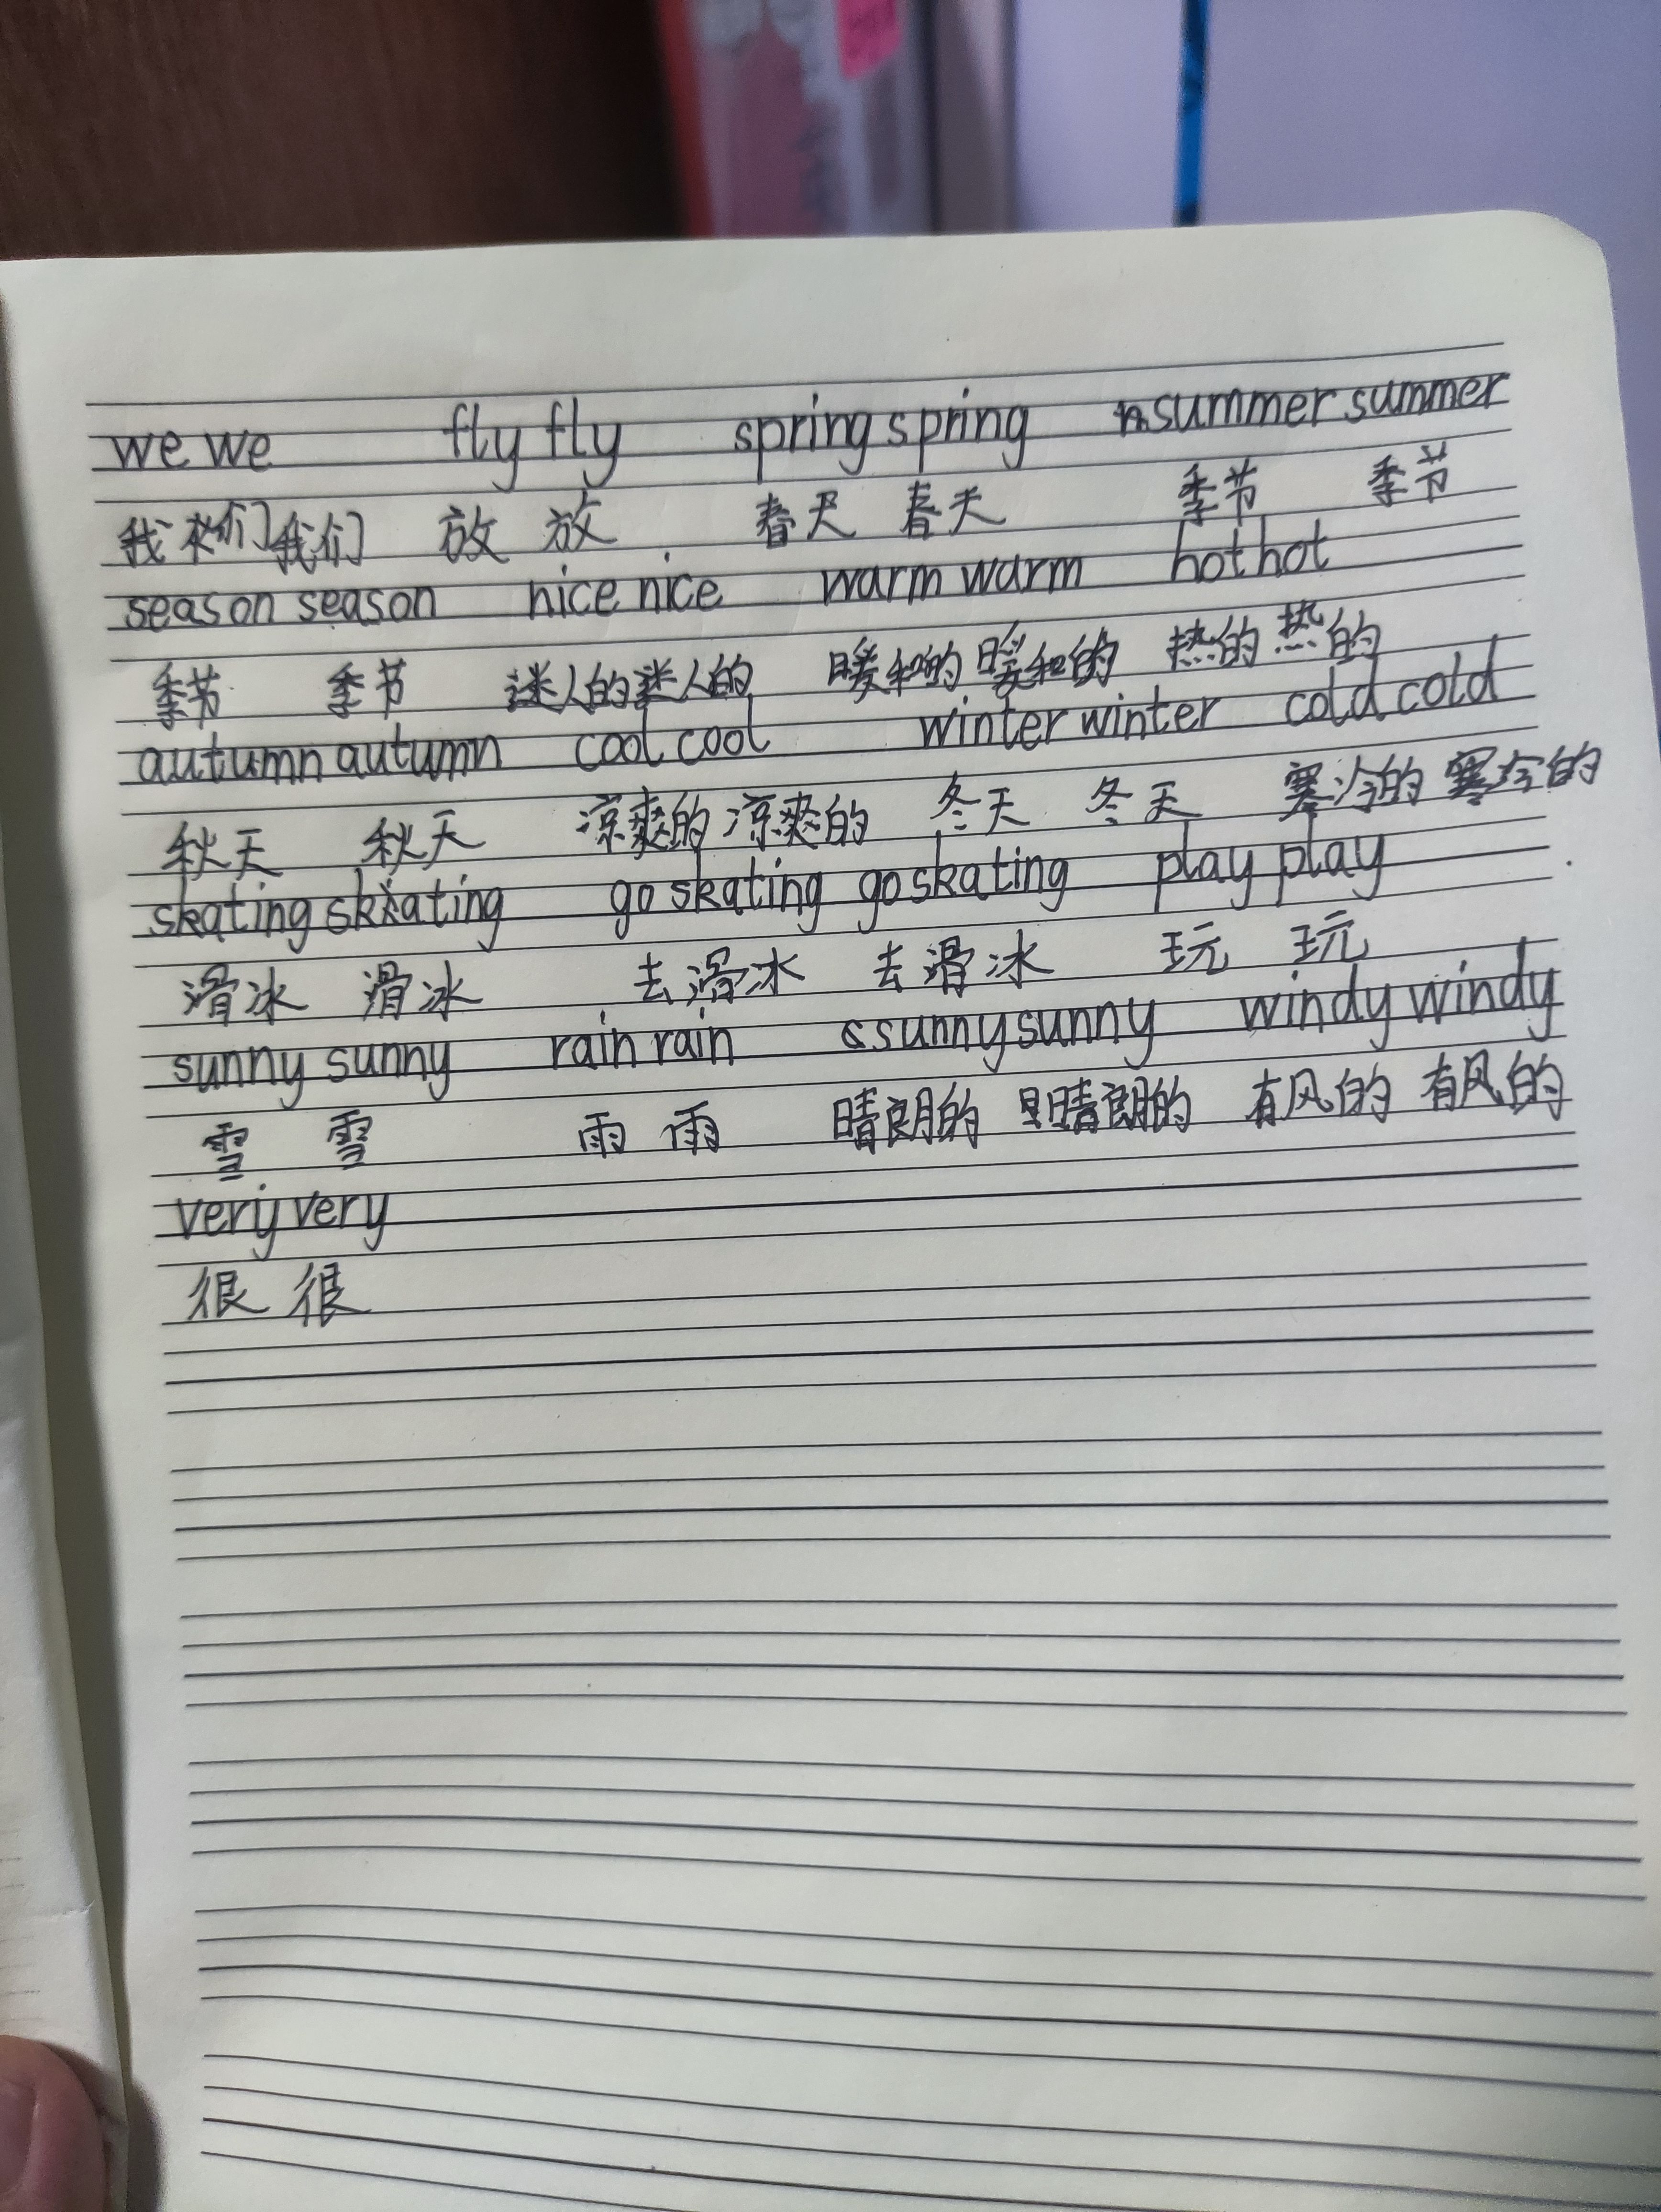 we we fly fly spring spring summer summer
我们 我们 放 放 春天 春天 季节 季节
season season nice nice warm warm hot hot
季节 季节 迷人的 迷人的 暖和的 暖和的 热的 热的
autumn autumn cool cool winter winter cold cold
秋天 秋天 凉爽的 凉爽的 冬天 冬天 寒冷的 寒冷的
skating skating go skating go skating play play
滑冰 滑冰 去滑冰 去滑冰 玩 玩
sunny sunny rain rain sunny sunny windy windy
雪 雪 雨 雨 晴朗的 晴朗的 有风的 有风的
very very
很 很